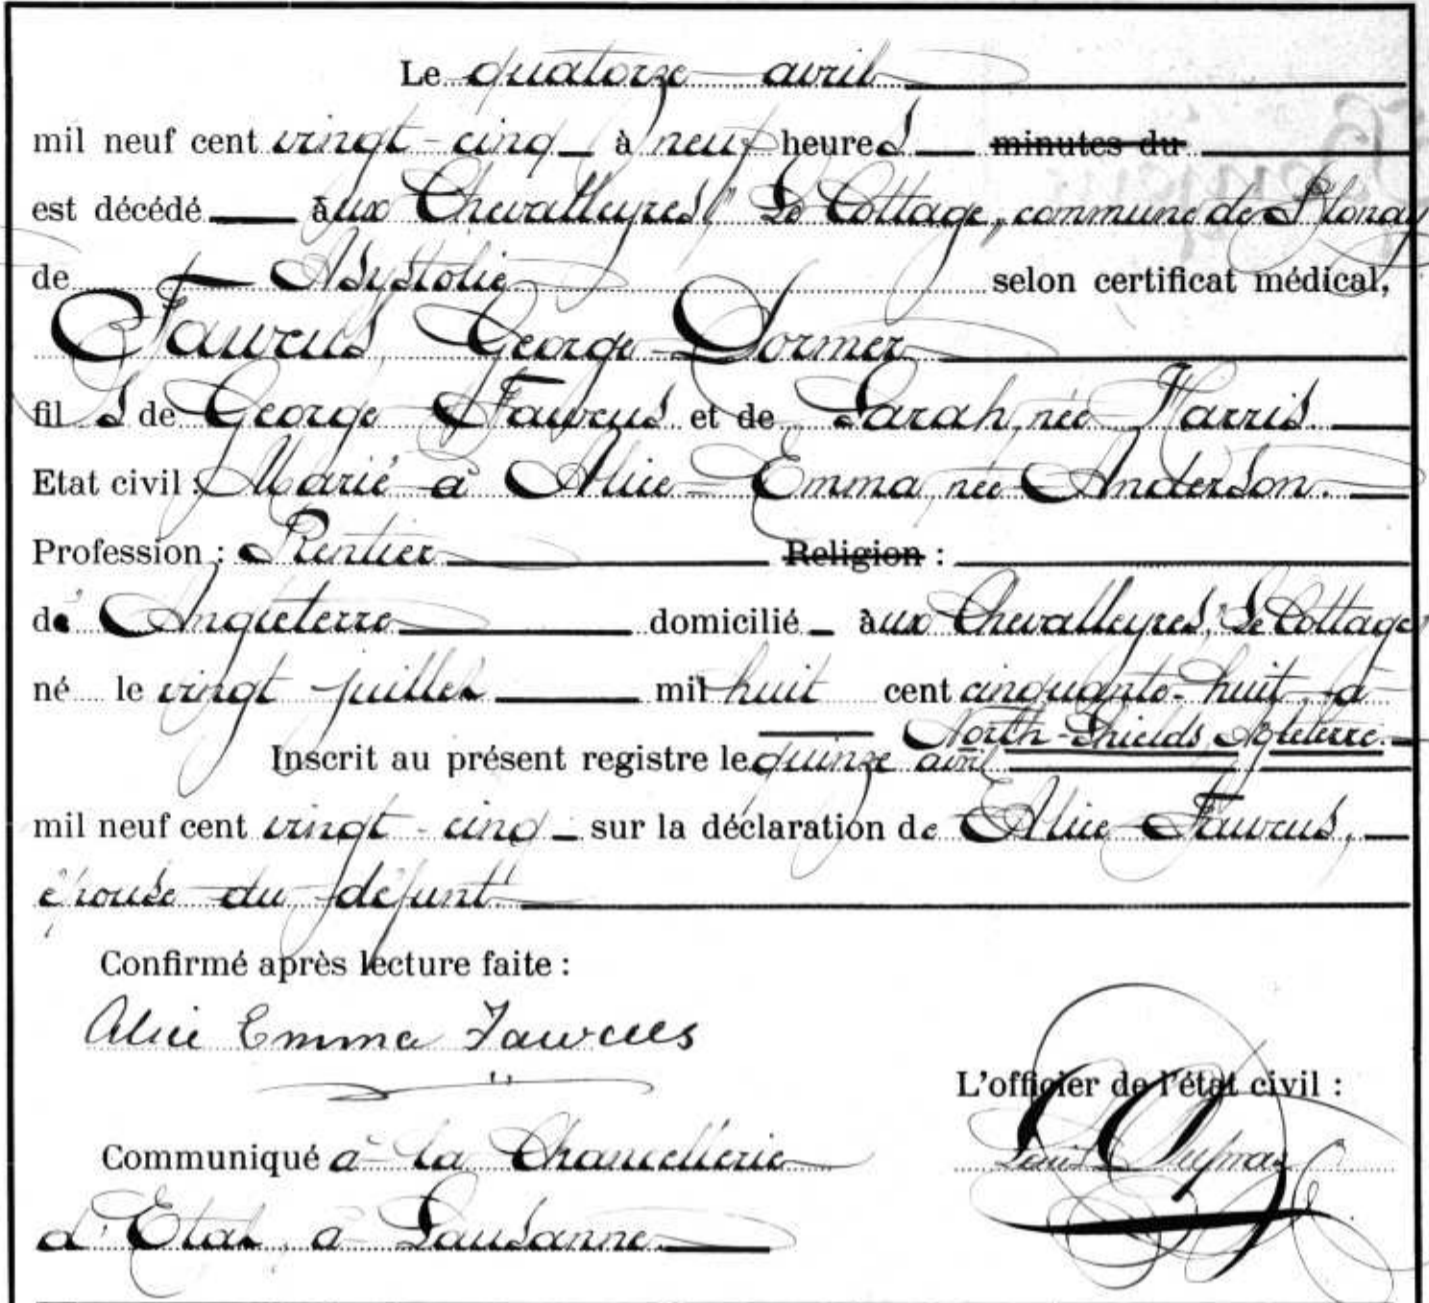 Le quatorze avril
mil neuf cent vingt-cinq à neuf heures minutes du
est décédé aux Chevalleyres "Le Cottage", commune de Blonay
de Asystolie selon certificat médical,
Fawcus, George Dormer
fils de George Fawcus et de Sarah, née Harris.
Etat civil : Marié à Alice-Emma, née Anderson.
Profession : Rentier Religion :
de Angleterre domicilié aux Chevalleyres, "Le Cottage
né le vingt juillet mil huit cent cinquante-huit, à
North-Shields, Agleterre.
Inscrit au présent registre le quinze avril
mil neuf cent vingt-cinq sur la déclaration de Alice Fawcus,
épouse du défunt.
Confirmé après lecture faite :
Alice Emma Fawcus
L'officier de l'état civil :
Communiqué à la Chancellerie Louis
d'Etat, à Lausanne.